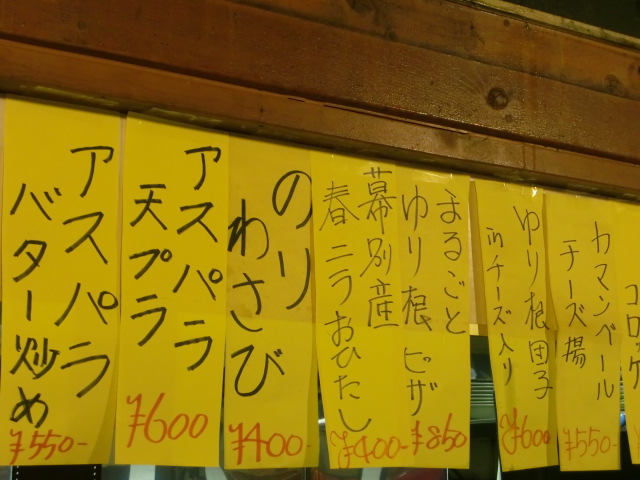 コロッケ
カマンベール
チーズ揚
¥550-
ゆり根団子
inチーズ入り
¥600
まるごと
ゆり根ピザ
¥850
幕別産
春ニラおひたし
¥400-
のり
わさび
¥400-
アスパラ
天プラ
¥600
アスパラ
バター炒め
¥550-